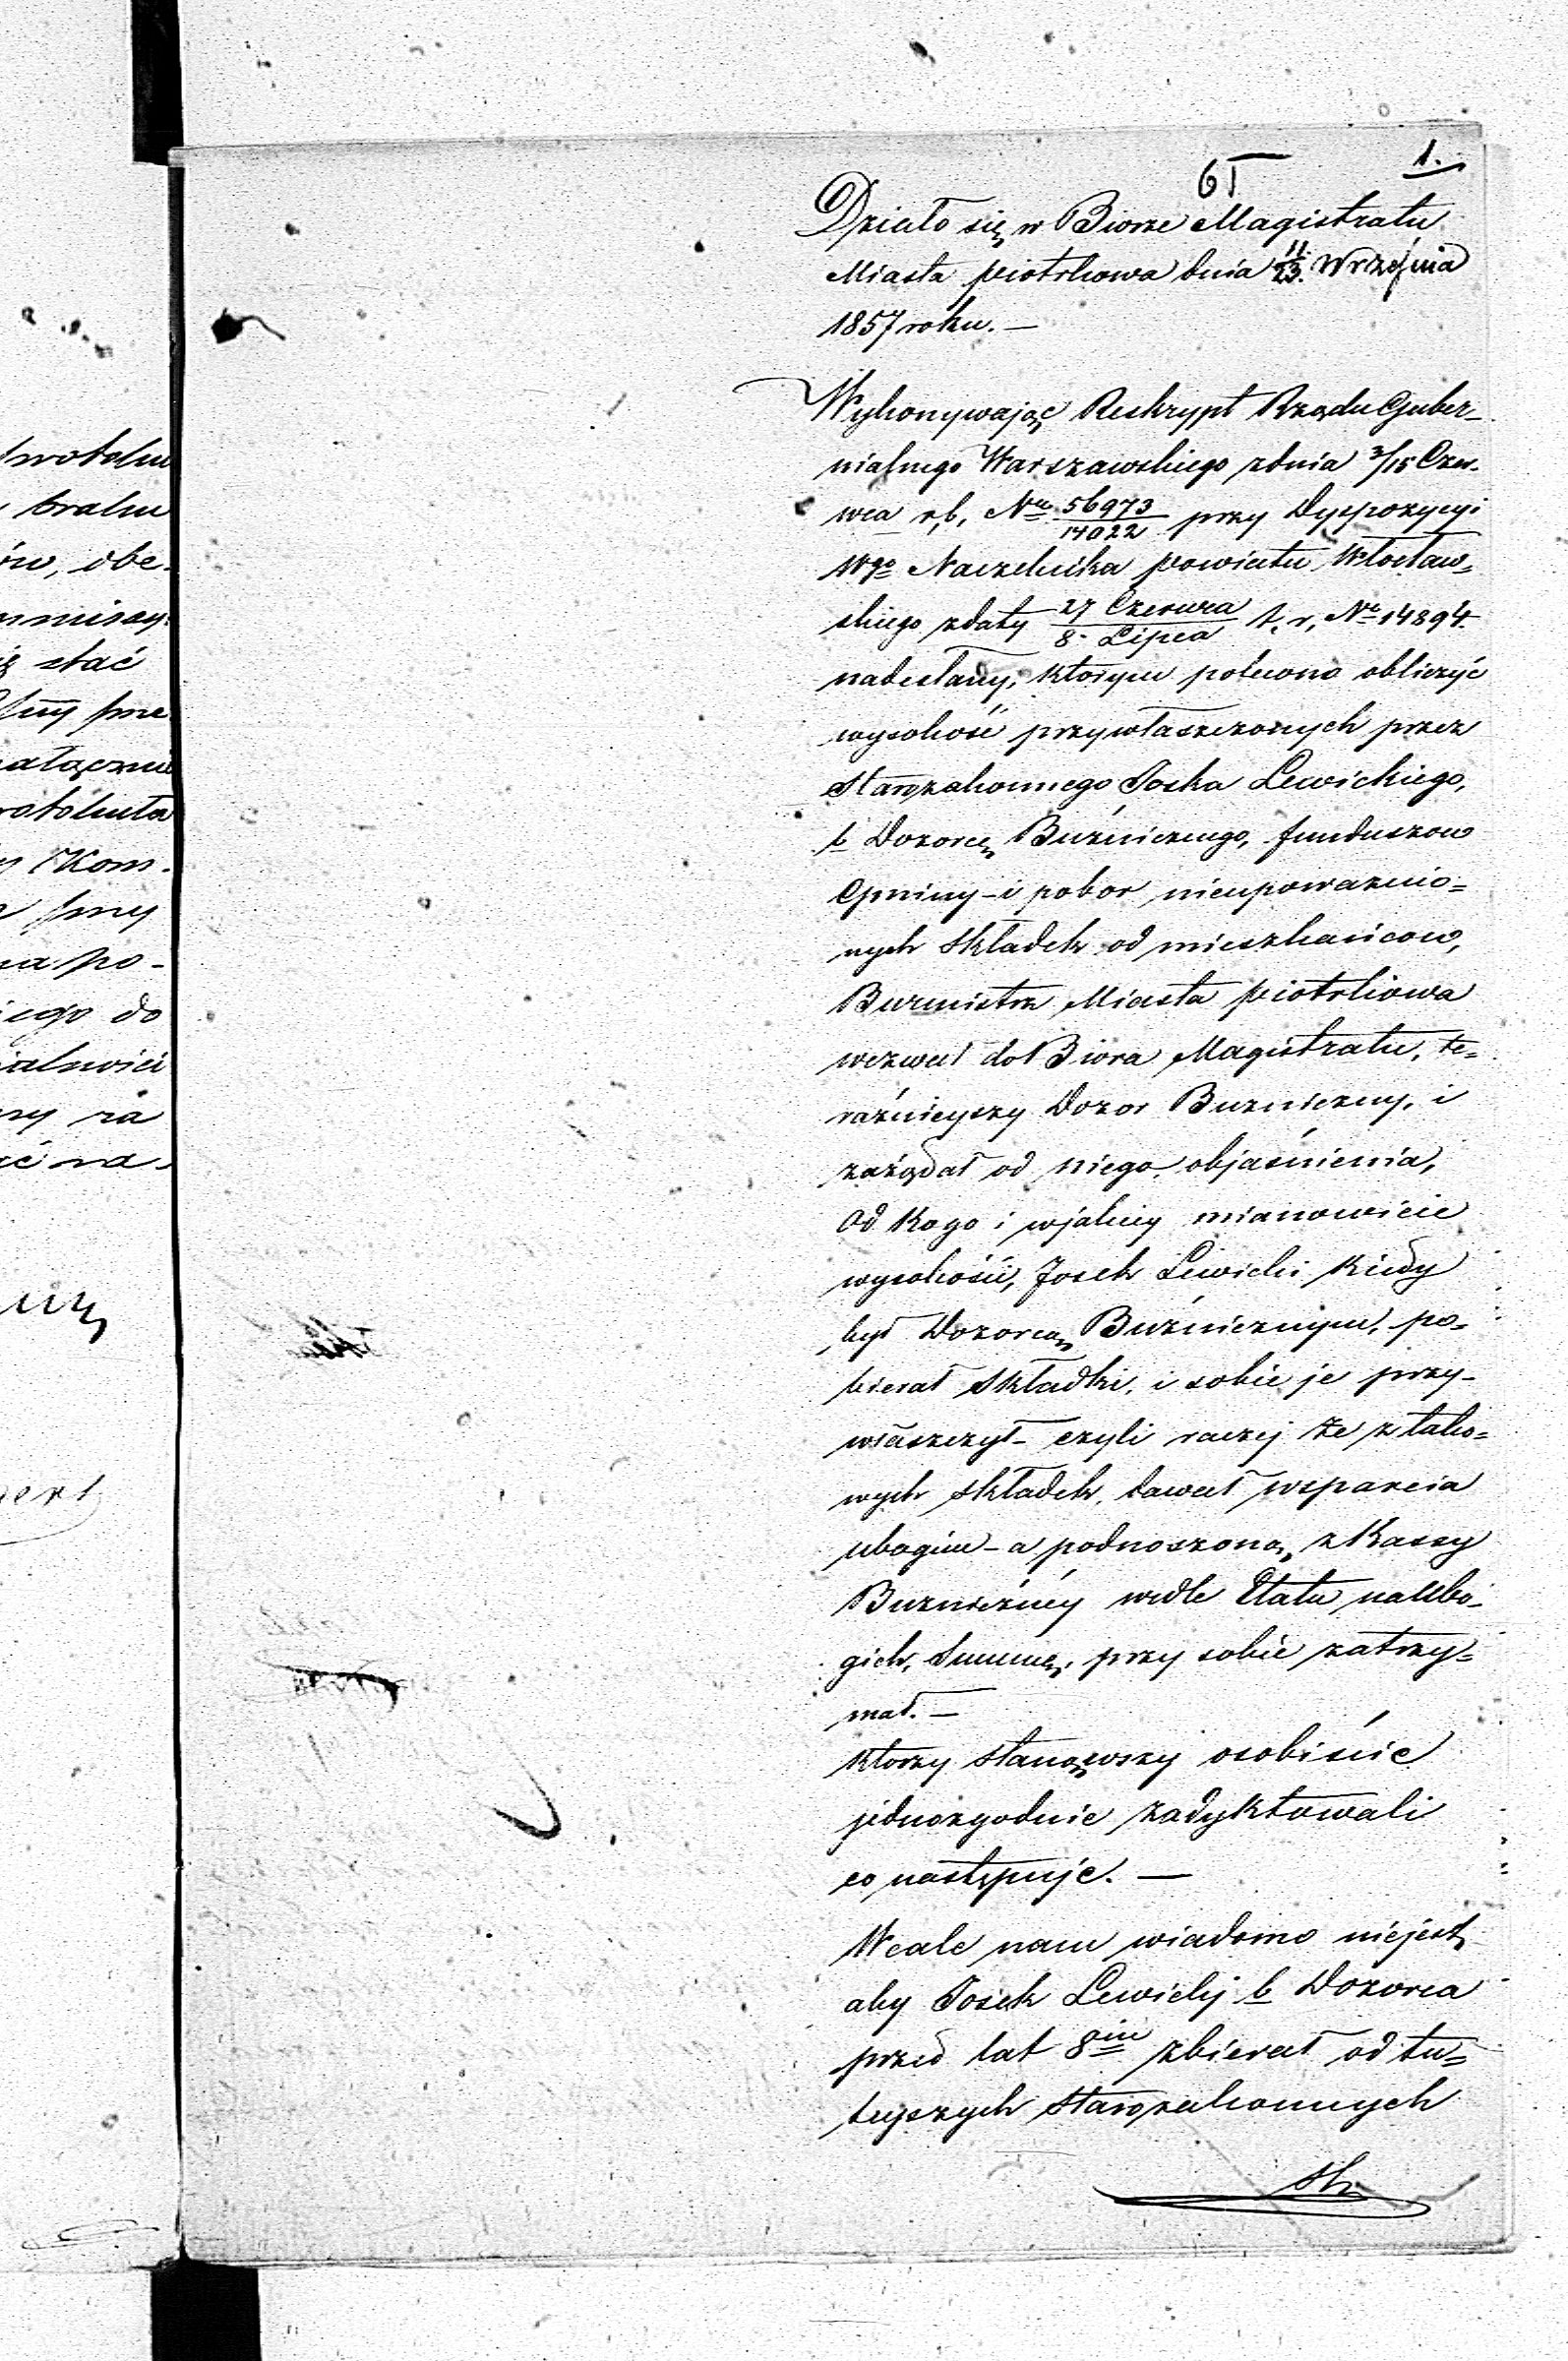 1.
61
Działo się w Biorze Magistratu
Miasta piotrkowa dnia 11/23. Września
1857 roku. —
Wykonywając Reskrypt Rządu Guber-
nialnego Warszawskiego z dnia 3/15 Czer-
wca r, b, Nro 56973/14022 przy Dyspozycyi
Wgo Naczelnika powiatu Włocław-
skiego z daty 27 Czerwca/8. Lipca t, r, Nr 14894.
nadesłany, którym polecono obliczyć
wysokość przywłaszczonych przez
Starozakonnego Joska Lewickiego,
b Dozorcę Buźnicznego, funduszow
Gminy - i pobor nieupoważnio=
nych składek od mieszkańcow,
Burmistrz Miasta piotrkowa
wezwał do Biora Magistratu, te=
raźnieyszy Dozor Buzniczny, i
zażądał od niego, objaśnienia,
Od Kogo i wjakiey mianowicie
wysokości, Josek Lewicki Kiedy
był Dozorcą Buźnicznym, po=
bierał składki, i sobie je przy-
właszczył - czyli raczej że z tako=
wych składek, dawał wsparcia
ubogim - a podnoszoną z Kassy
Buzniczney wedle Etatu na Ubo-
gich, Summę, przy sobie zatrzy=
mał. —
Ktorzy stanąwszy osobiście
jednozgodnie zadyktowali
co następuje. —
Wcale nam wiadomo niejest,
aby Josek Lewickj b Dozorca
przed lat 8iu zbierał od tu=
teyszych starozakonnych